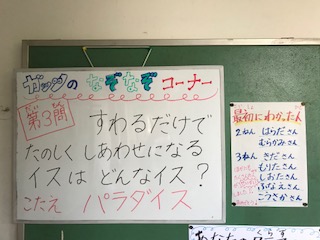 ガッツの なぞなぞ コーナー
第3問
すわるだけで
たのしく しあわせになる
イスは どんなイス？
こたえ パラダイス
最初にわかったん
2ねん はらださん
むらかみさん
3ねん きださん
もりたさん
しおたさん
ふなえさん
こうさかさん